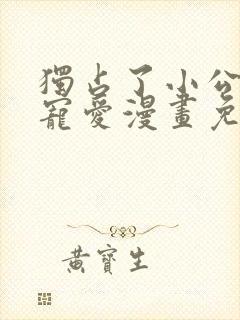 獨占了小公
寵愛漫畫免
黃寶生